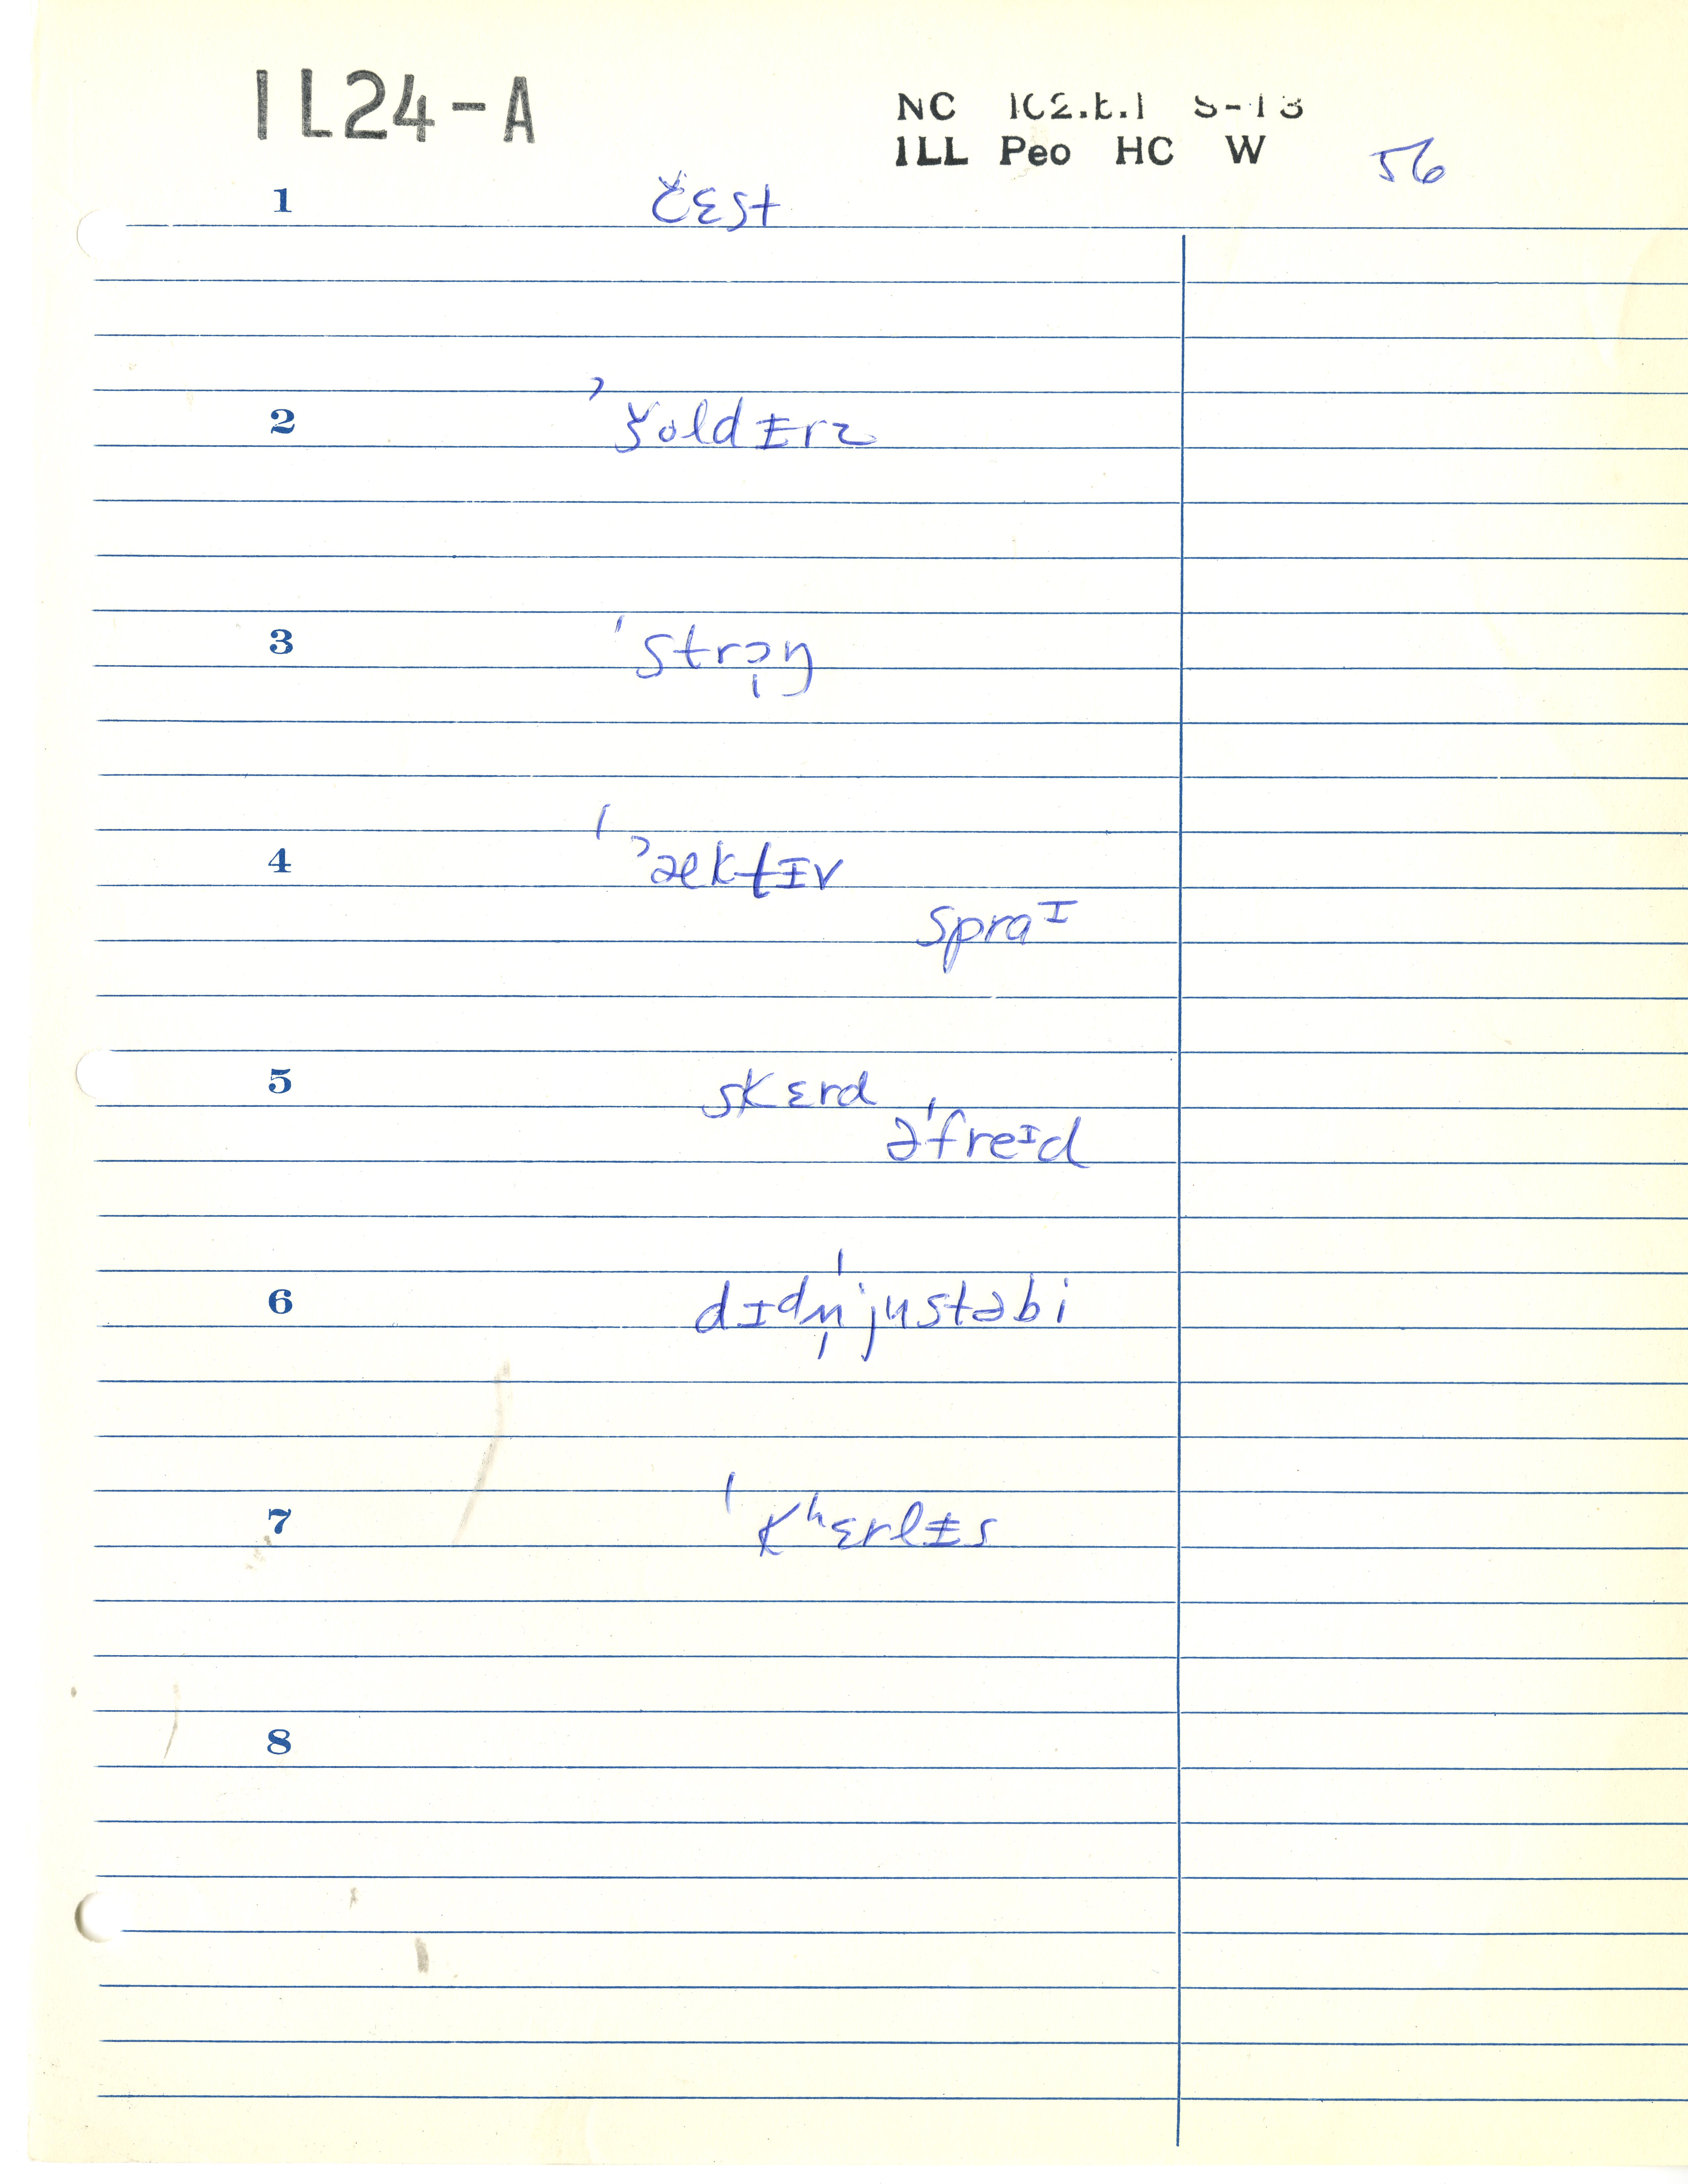 IL24-A
NC 102.b.1 S-13
ILL Peo HC W 56
1 čɛst
2 ʼšoldɪ̵rz
3 ˈstrɔ̩ŋ
4 ˈʼæktɪv
spraᶦ
5 skɛrd
əˈfreᶦd
6 dɪdn̩ˈjustəbi
7 ˈkʰɛrlɪ̵s
8